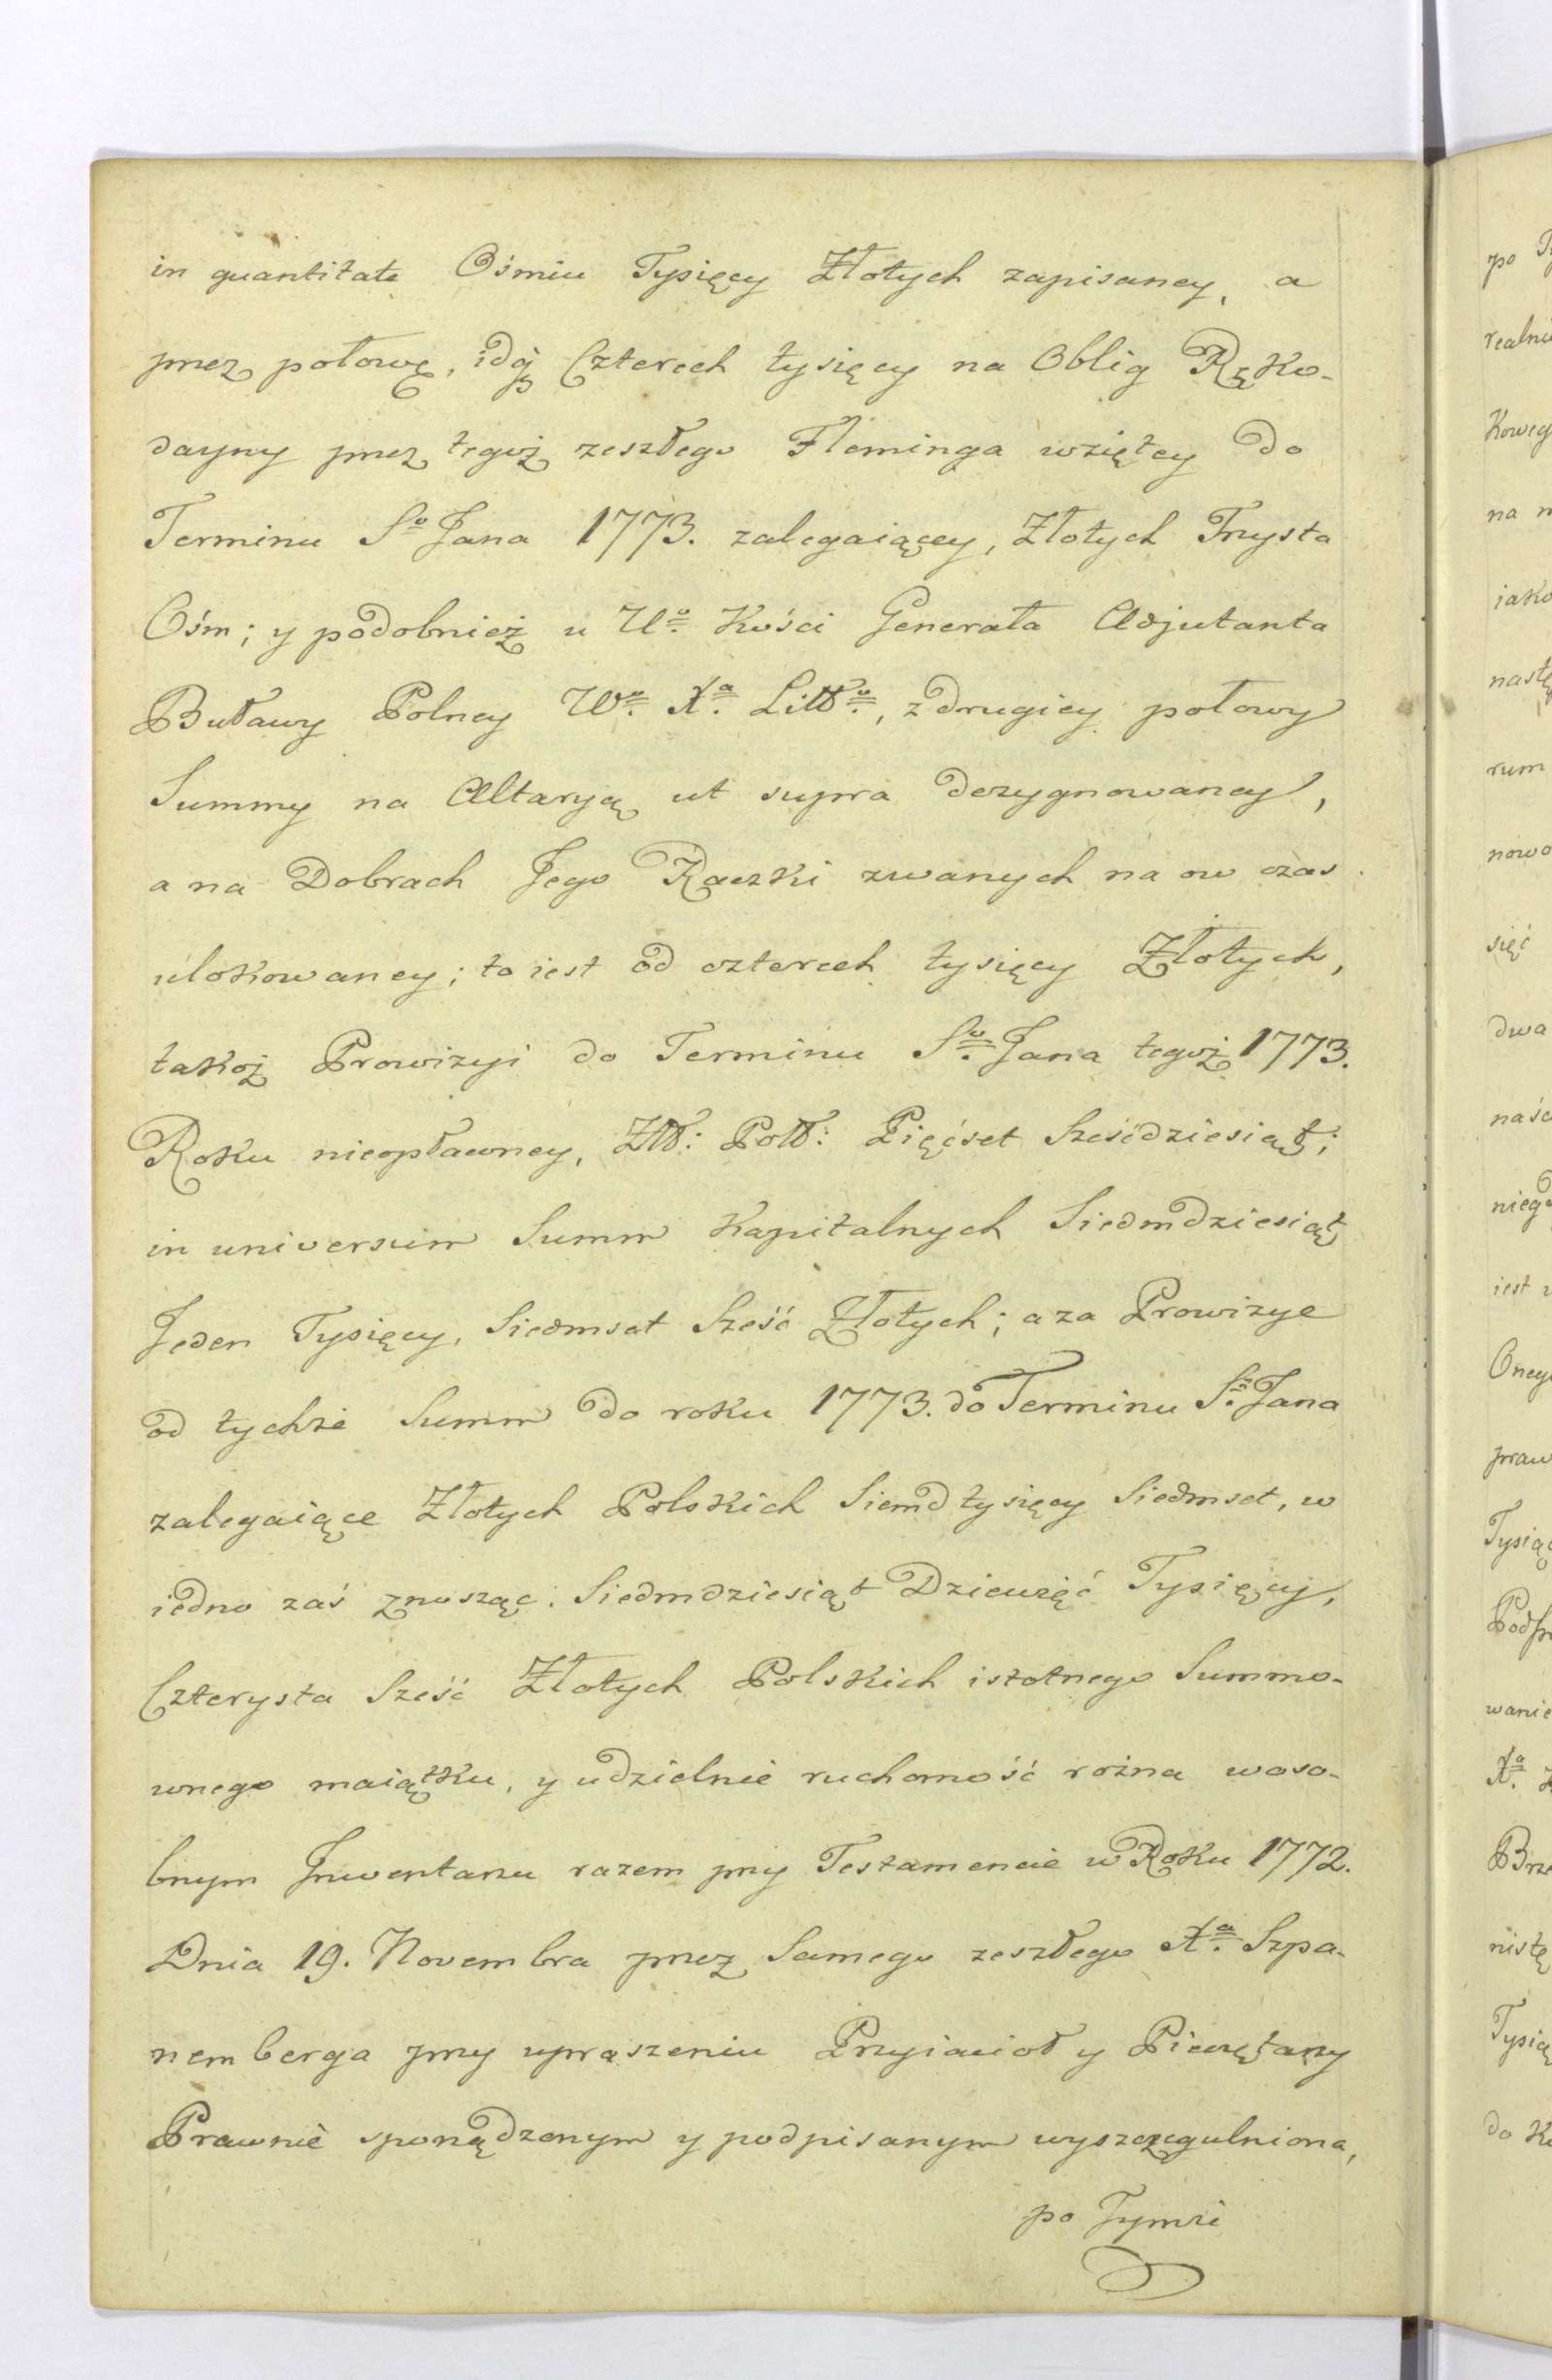 in quantitate Ośmiu Tysięcy Złotych zapisaney, a
przez połowę, idq̃ Czterech tysięcy na Oblig Ręko-
dayny przez tegoż zeszłego Fleminga wziętey do
Terminu Sº Jana 1773. zalegaiącey, Złotych Trzysta
Ośm; y podobnież u Uº. Kości Generała Adjutanta
Buławy Polney Wº. Xª. Littº., z drugiey połowy
Summy na Altaryą ut supra dezygnowaney,
a na Dobrach Jego Raczki zwanych na ow czas
ulokowaney; to iest od czterech tysięcy Złotych,
takoż Prowizyi do Terminu Sº. Jana tegoż 1773.
Roku nieopławney, Złł: Poll: Pięćset Sześćdziesiąt;
in universum Summ Kapitalnych Siedmdziesiąt
Jeden Tysięcy, Siedmset Sześć Złotych; a za Prowizye
od tychże Summ do roku 1773. do Terminu Sº. Jana
zalegaiące Złotych Polskich Siemd tysięcy Siedmset, w
iedno zaś znosząc. Siedmdziesiąt Dziewięć Tysięcy,
Czterysta Sześć Złotych Polskich istotnego Summo-
wnego maiątku, y udzielnie ruchomość rożna woso-
bnym Inwentarzu razem przy Testamencie w Roku 1772.
Dnia 19. Novembra przez Samego zeszłego Xª. Szpa-
nemberga przy uproszeniu Przyiacioł y Pieczętarzy
Prawnie sporządzonym y podpisanym wyszczegulniona,
po Tymże
po
Koweg
na
iako
rum
nowo
sięć
dwa
iest
Tysiąc
wanie
Xª.
nistę